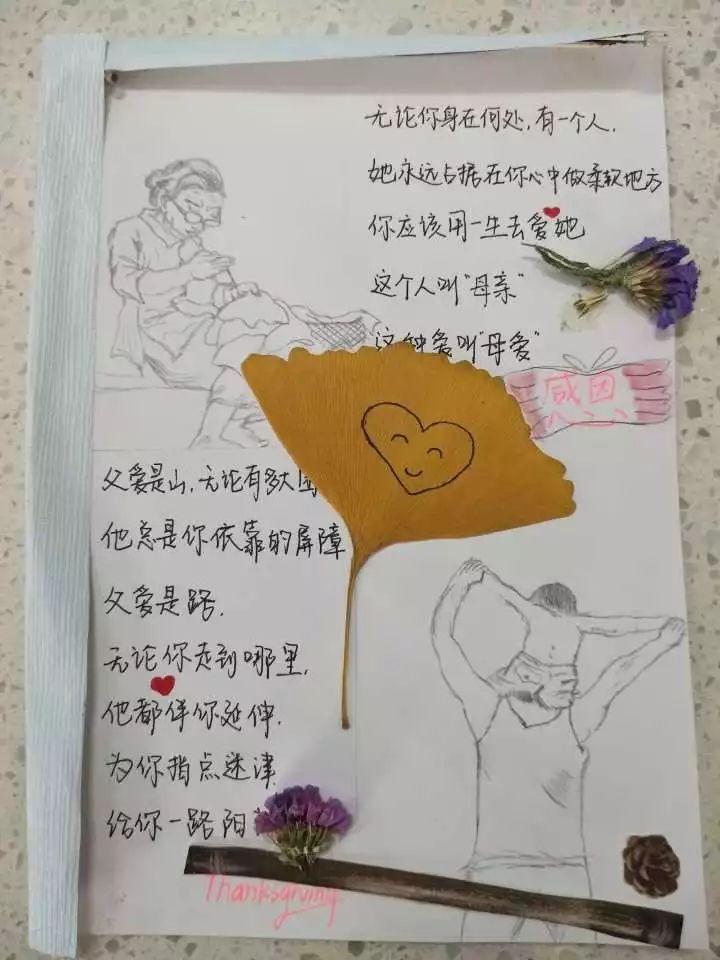 无论你身在何处,有一个人.
她永远占据在你心中做柔软地方
你应该用一生去爱她
这个人叫"母亲"
这种爱叫"母爱"
感因
父爱是山,无论有多大
他总是你依靠的屏障
父爱是路.
无论你走到哪里.
他都伴你延伸.
为你指点迷津
给你一路阳
Thanksgiving